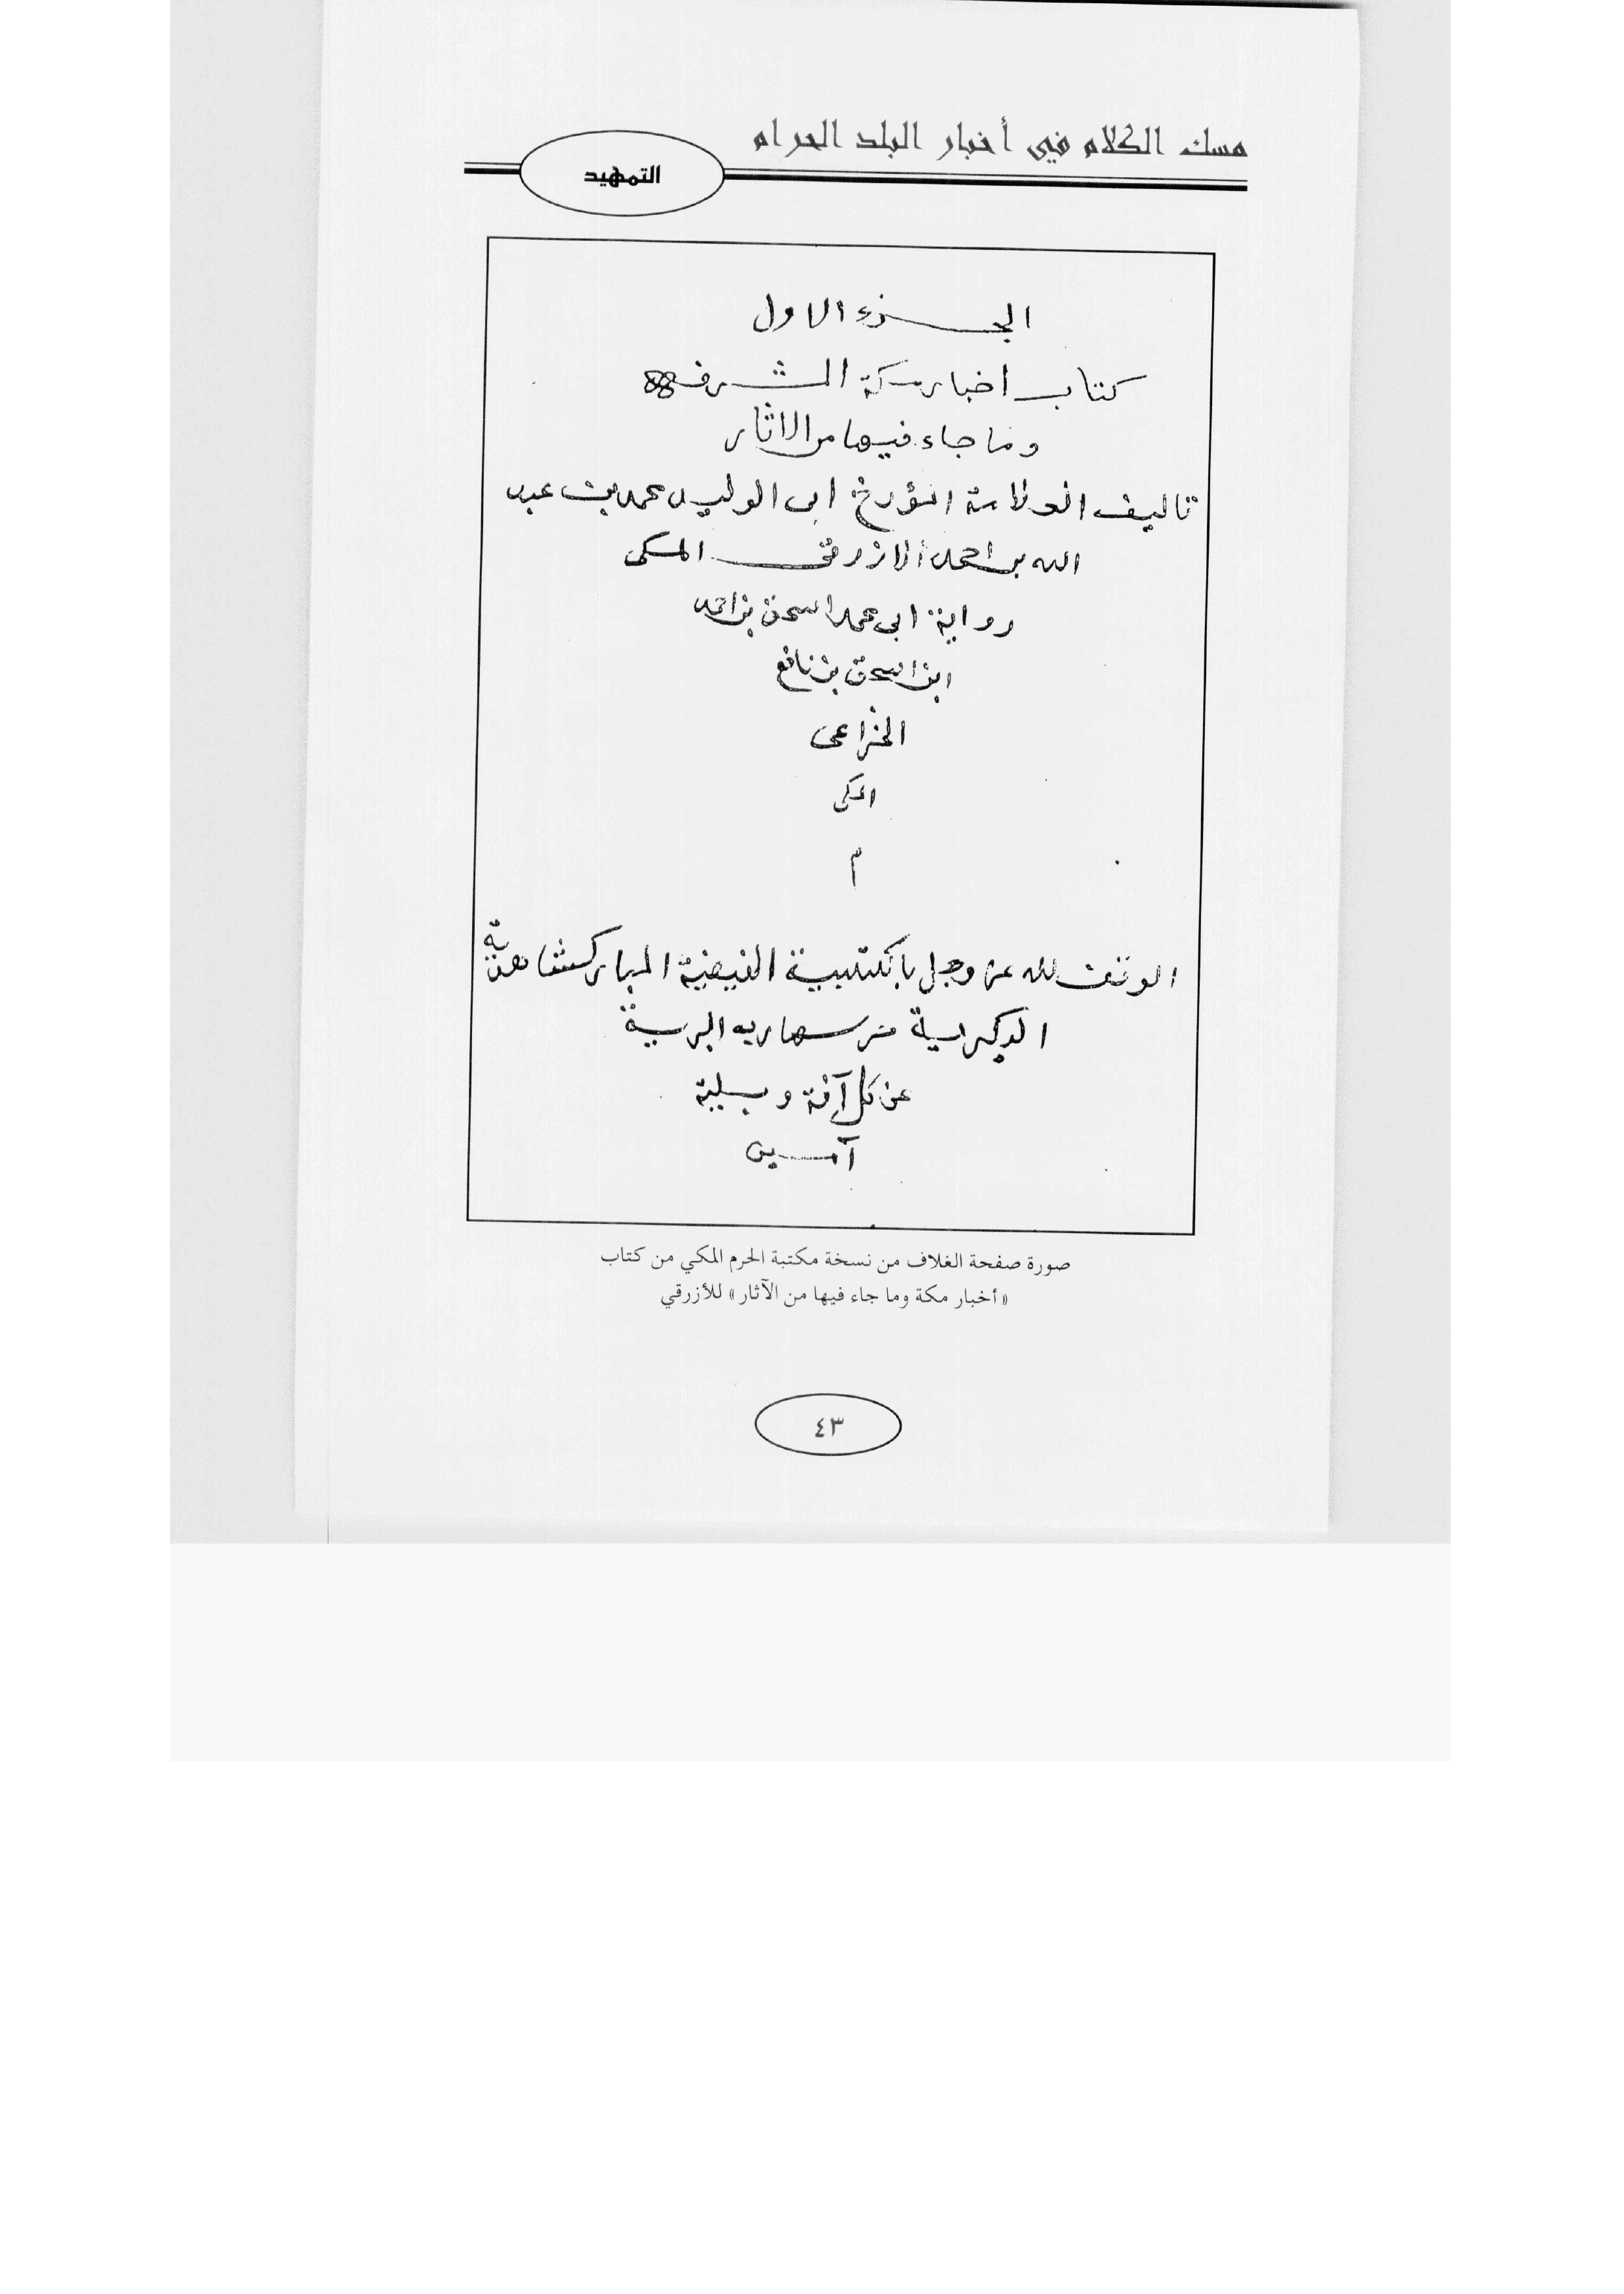 مسك الكلام في أخبار البلد الحرام
التمهيد
الجزء الاول
كتاب اخبار مكة المشرفه
وما جاء فيها من الاثار
تاليف العلامة المؤرخ ابى الوليد محمد بن عبد
الله بن احمد الازرقى المكى
رواية ابى محمد اسحق بن احمد
ابن اسحق بن نافع
الخزاعى
المكى
م
الوقف لله عز وجل بالكتبية الفيضية المباركشاهية
البرية
عن كل آفة وبلية
آمين
صورة صفحة الغلاف من نسخة مكتبة الحرم المكي من كتاب
«أخبار مكة وما جاء فيها من الآثار» للأزرقي
٤٣